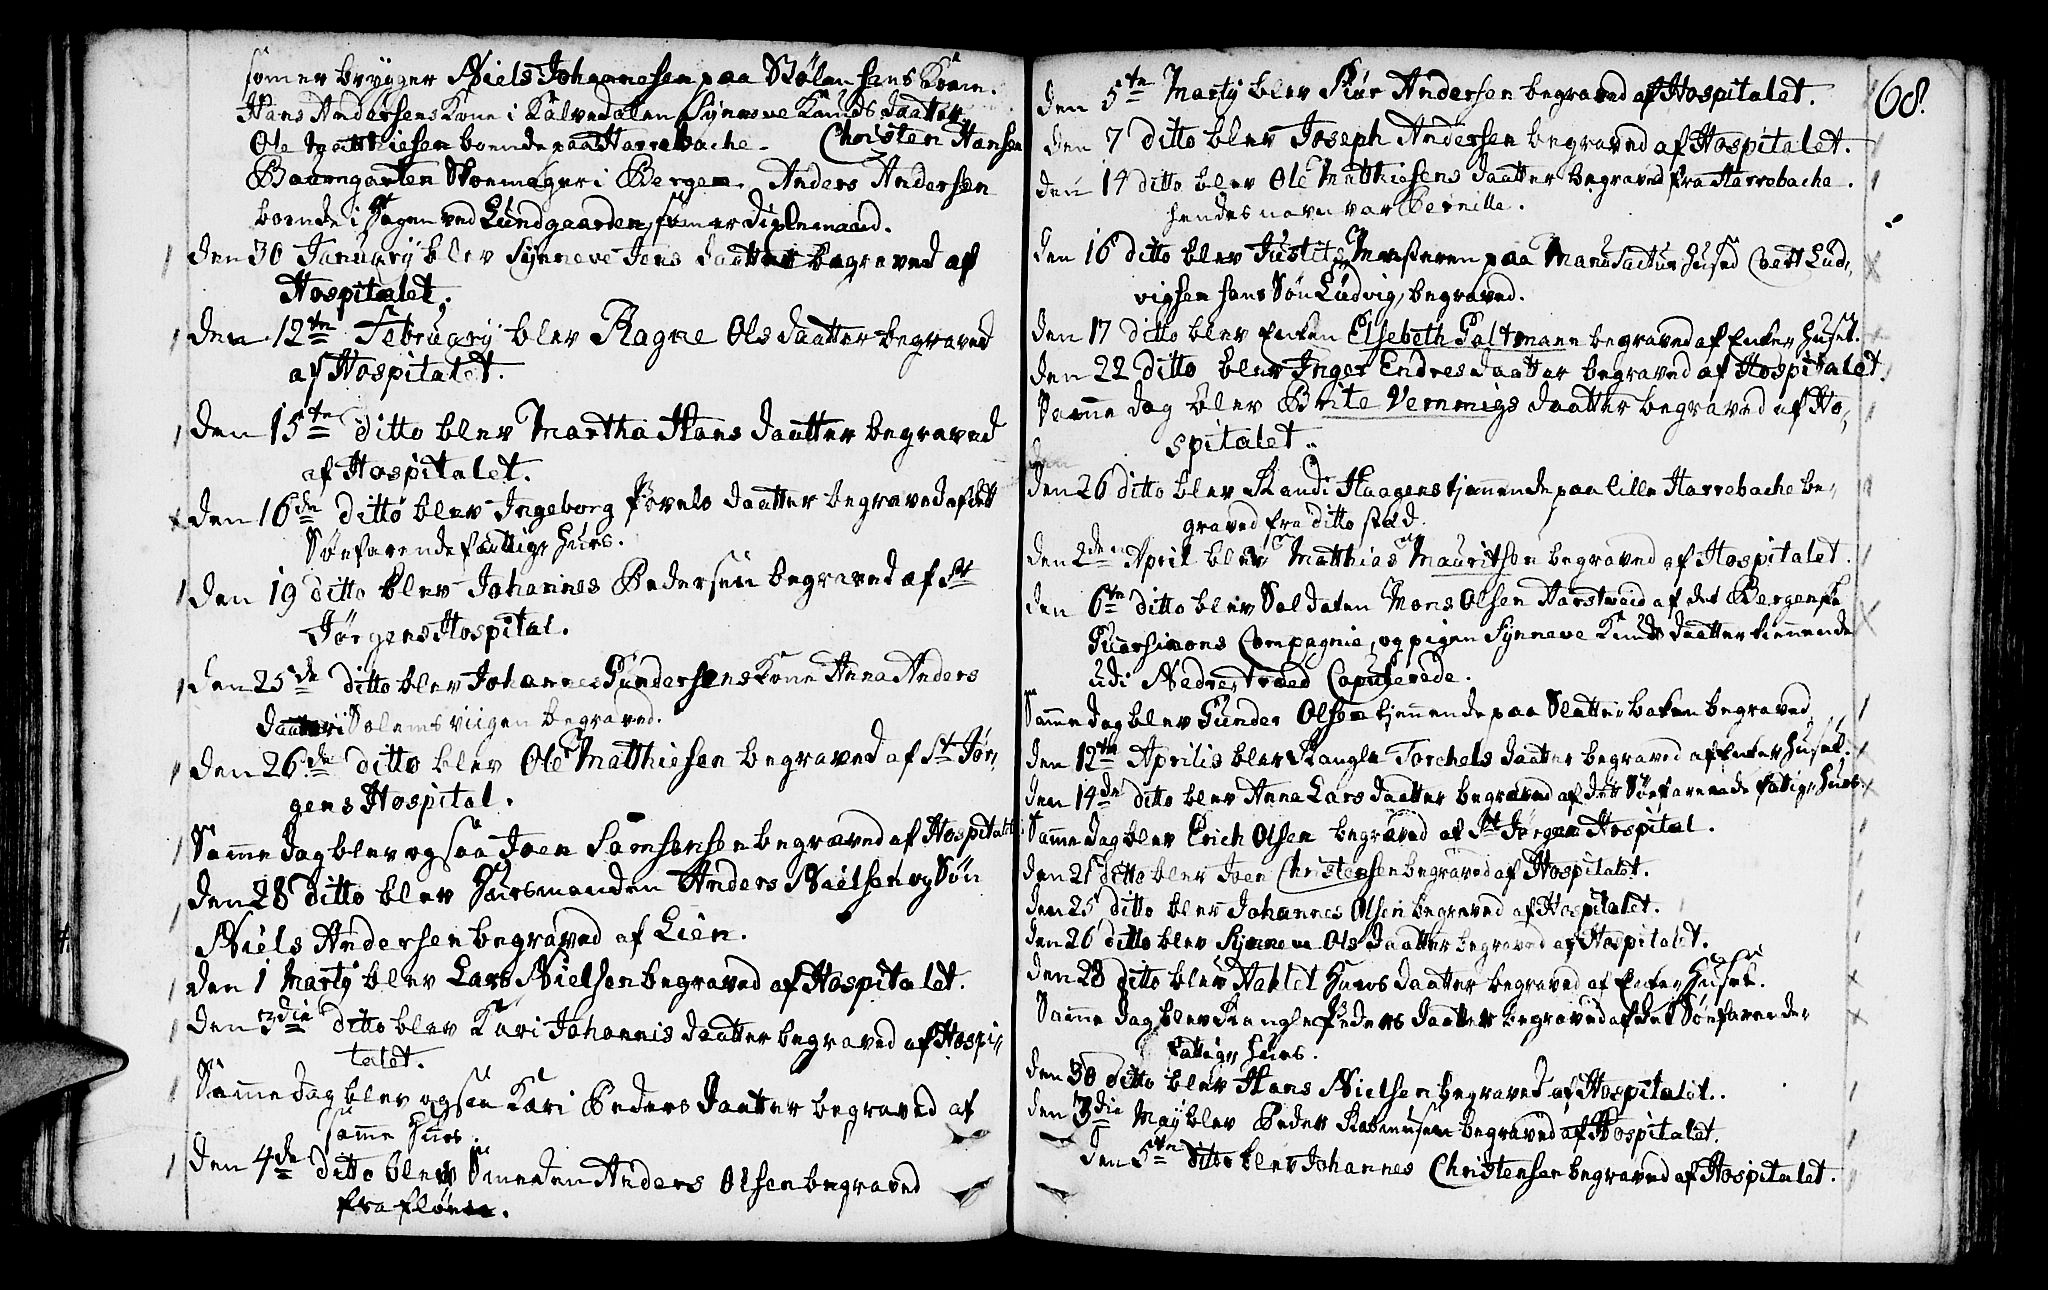 som er brygger Niels Johannesen paa Stølen hans Kone.
Hans Andersens Kone i Kalvedalen Synneve Knuds daatter
Ole Matthiesen boende paa Harrebache. Christen Hansen
Baumgarten Skoemager i Bergen. Anders Andersen
boende i Hagen ved Lundgaarden, som er
Den 30 January blev Synneve Jens daatter begraved af
Hospitalet.
Den 12te February blev Ragne Ols daatter begraved
af Hospitalet.
Den 15te ditto blev Martha Hans daatter begraved
af Hospitalet.
Den 16de ditto blev Ingeborg Povels daatter begraved af det
Søefarende fattig Huus.
Den 19 ditto blev Johannes Pedersen begraved af St
Jørgens Hospital.
Den 25de ditto blev Johannes Gundersens Kone Anna Anders
daatter i Solems viigen begraved.
Den 26de ditto blev Ole Matthiesen begraved af St Jør-
gens Hospital.
Samme dag blev ogsaa Joen Samsonsen begraved af Hospitalet
Den 28 ditto blev Huusmanden Anders Nielsen og Søn
Niels Andersen begraved af Lien.
Den 1 Marty blev Lars Nielsen begraved af Hospitalet.
Den 3die ditto blev Kari Johannis daatter begraved af Hospi-
talet.
Samme dag blev ogsaa Kari Peders daatter begraved af
samme Huus.
Den 4de ditto blev Smeden Anders Olsen begraved
fra Fløien.
68.
Den 5te Marty blev Siur Andersen begraved af Hospitalet.
Den 7 ditto blev Joseph Andersen begraved af Hospitalet.
Den 14 ditto blev Ole Matthiesens daatter begraved fra Harrebache.
hendes navn var Pernille.
Den 16 ditto blev paa Manufactur Huused Coett Lud-
vigsen hans Søn Ludvig, begraved.
Den 17 ditto blev Enken Elsebeth Galtmann begraved af Enke Huset.
Den 22 ditto blev Inger Endres daatter begraved af Hospitalet.
Samme dag blev Brite Vemmigs daatter begraved af Ho-
spitalet.
Den 26 ditto blev Randi Haagens tjenende paa lille Harrebache be-
graved fra ditto stæd.
Den 2den April blev Matthias Mauritson begraved af Hospitalet.
Den 6te ditto blev Soldaten Mons Olsen Aarstvaid af det Bergenske
Guarnisons Compagnie, og pigen Synneve Knuds daatter tienende
udi Nedre stræed Copulerede.
Samme dag blev Gunder Olsen tjenende paa Sletterbaken begraved
Den 12te Aprilis blev Rangle Torchels daatter begraved af Enke Huset.
Den 14de ditto blev Anna Lars daatter begraved af det Søefarende fattig Huus.
Samme dag blev Erich Olsen begraved af St Jørgen Hospital.
Den 21 ditto blev Joen Christensen begraved af Hospitalet.
Den 25 ditto blev Johannes Olsen begraved af Hospitalet.
Den 26 ditto blev Synneve Ols daatter begraved af Hospitalet.
Den 28 ditto blev daatter begraved af Enke Huset.
Samme dag blev Rangle Peders daatter begraved af det Søefarende
fattig Huus.
Den 30 ditto blev Hans Nielsen begraved af Hospitalet.
Den 3die May blev Peder Rasmusen begraved af Hospitalet.
Den 5te ditto blev Johannes Christensen begraved af Hospitalet.